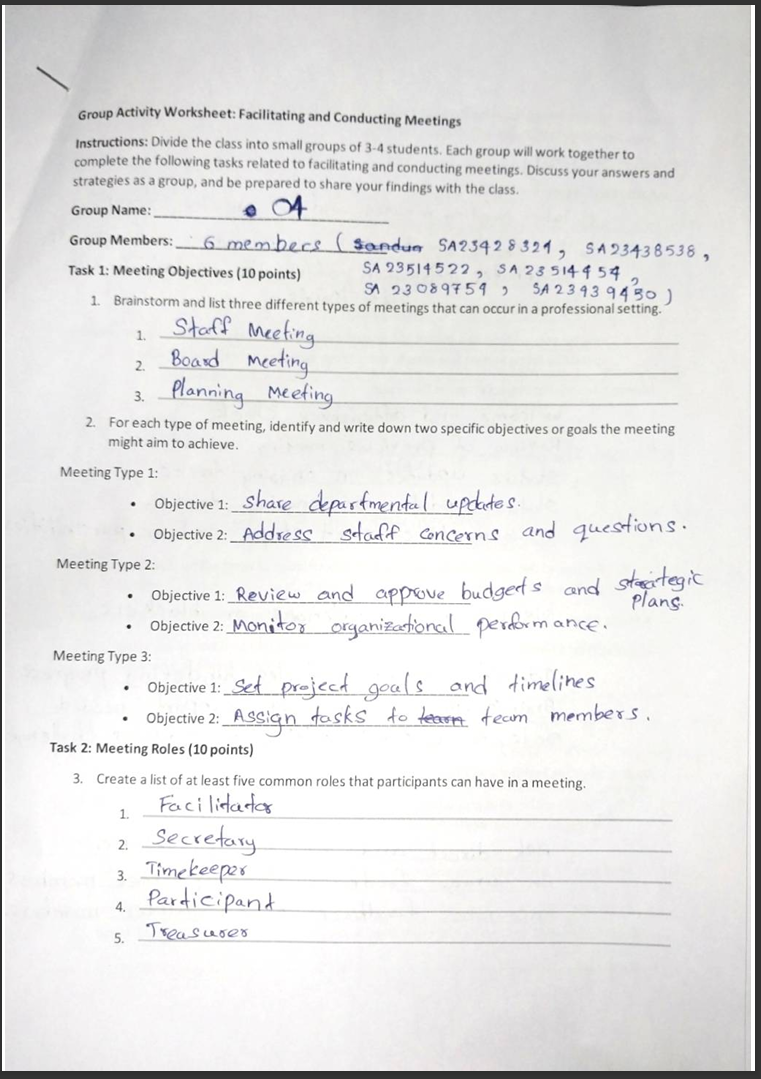 Group Activity Worksheet: Facilitating and Conducting Meetings
Instructions: Divide the class into small groups of 3-4 students. Each group will work together to
complete the following tasks related to facilitating and conducting meetings. Discuss your answers and
strategies as a group, and be prepared to share your findings with the class.
Group Name: 04
Group Members: 6 members ( SA23428321, SA23438538,
SA 23514522, SA 23514454,
SA 23089754, SA23939430)
Task 1: Meeting Objectives (10 points)
1. Brainstorm and list three different types of meetings that can occur in a professional setting.
1. Staff Meeting
2. Board Meeting
3. Planning Meeting
2. For each type of meeting, identify and write down two specific objectives or goals the meeting
might aim to achieve.
Meeting Type 1:
• Objective 1: Share departmental updates.
• Objective 2: Address staff concerns and questions.
Meeting Type 2:
• Objective 1: Review and approve budgets and strategic
Plans.
• Objective 2: Monitor organizational performance.
Meeting Type 3:
• Objective 1: Set project goals and timelines
• Objective 2: Assign tasks to team members.
Task 2: Meeting Roles (10 points)
3. Create a list of at least five common roles that participants can have in a meeting.
1. Facilitator
2. Secretary
3. Timekeeper
4. Participant
5. Treasurer